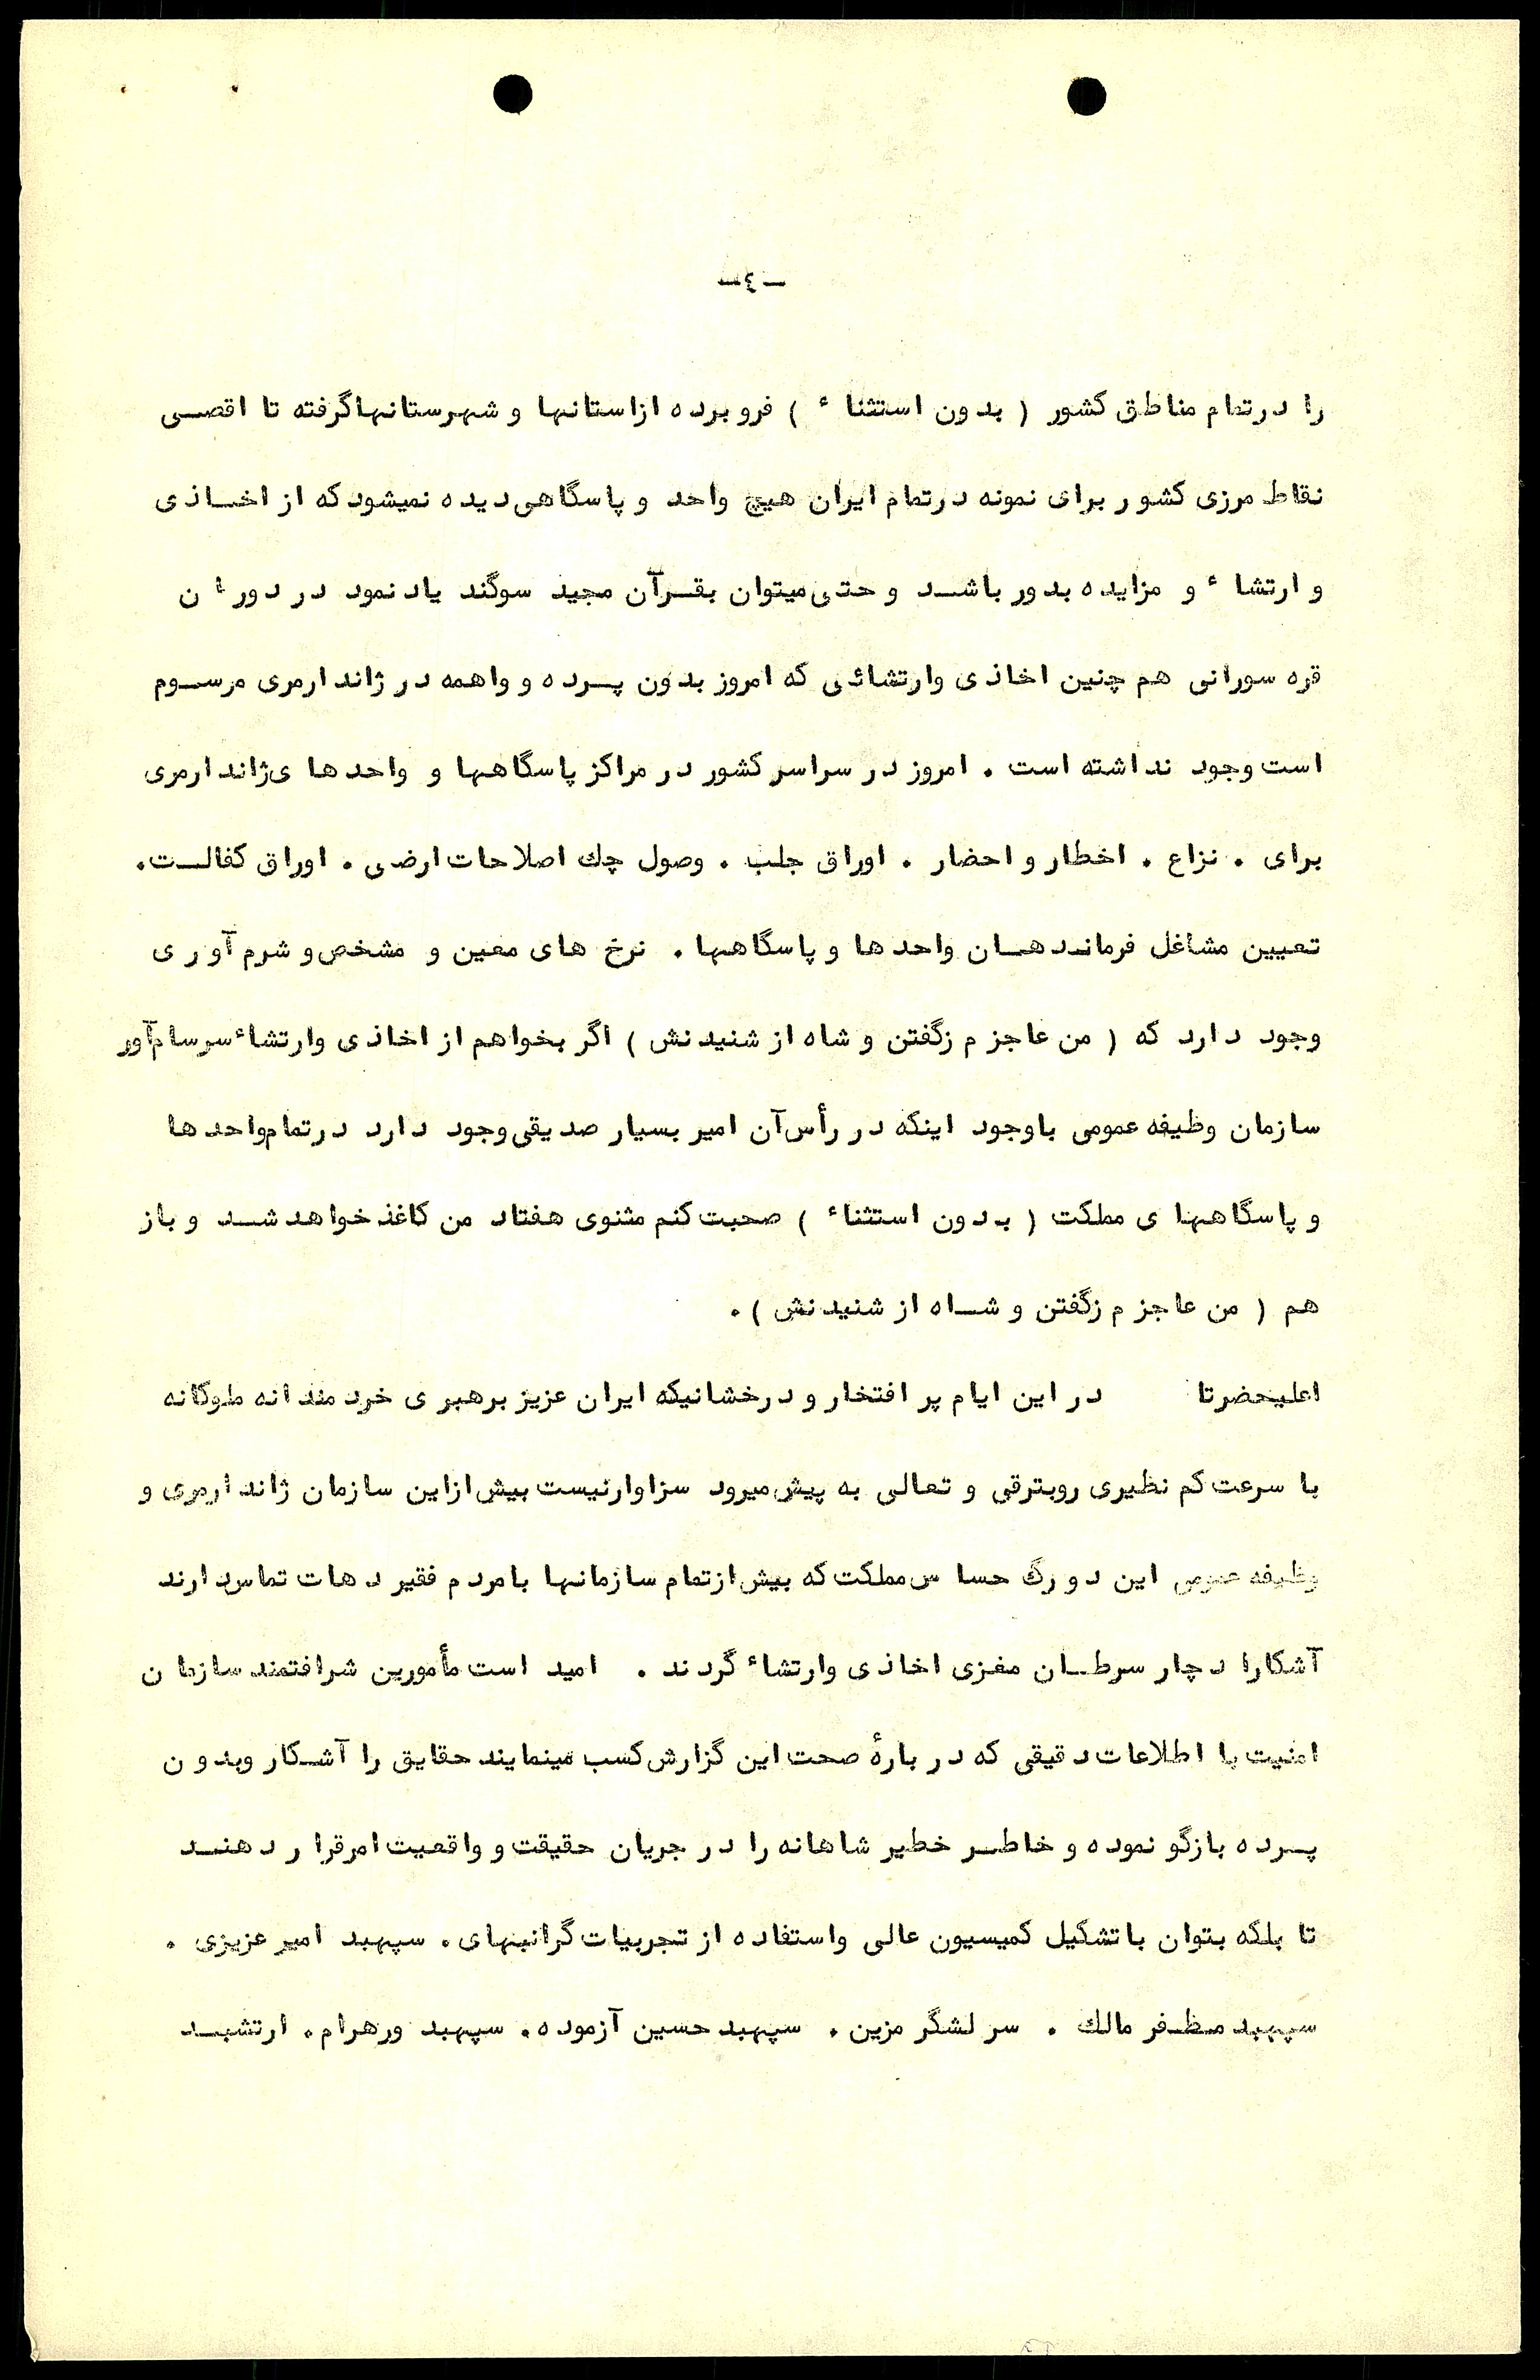 -٤-
را درتمام مناطق کشور ( بدون استثناء ) فرو برده ازاستانها و شهرستانها گرفته تا اقصی
نقاط مرزی کشور برای نمونه درتمام ایران هیچ واحد و پاسگاهی دیده نمیشود که از اخاذی
و ارتشاء و مزایده بدور باشد و حتی میتوان بقرآن مجید سوگند یاد نمود در دوران
قره سورانی هم چنین اخاذی وارتشائی که امروز بدون پرده و واهمه در ژاندارمری مرسوم
است وجود نداشته است . امروز در سراسر کشور در مراکز پاسگاهها و واحدهای ژاندارمری
برای . نزاع . اخطار و احضار . اوراق جلب . وصول چك اصلاحات ارضی . اوراق کفالت .
تعیین مشاغل فرماندهان واحدها و پاسگاهها . نرخ های معین و مشخص و شرم آوری
وجود دارد که ( من عاجزم زگفتن و شاه از شنیدنش ) اگر بخواهم از اخاذی وارتشاء سرسام آور
سازمان وظیفه عمومی باوجود اینکه در رأس آن امیر بسیار صدیقی وجود دارد درتمام واحدها
و پاسگاههای مملکت ( بدون استثناء ) صحبت کنم مثنوی هفتاد من کاغذ خواهد شد و باز
هم ( من عاجزم زگفتن و شاه از شنیدنش ) .
اعلیحضرتا در این ایام پر افتخار و درخشانیکه ایران عزیز برهبری خردمندانه ملوکانه
با سرعت کم نظیری روبترقی و تعالی به پیش میرود سزاوارنیست بیش ازاین سازمان ژاندارمری و
وظیفه عمومی این دو رگ حساس مملکت که بیش ازتمام سازمانها بامردم فقیر دهات تماس دارند
آشکارا دچار سرطان مغزی اخاذی وارتشاء گردند . امید است مأمورین شرافتمند سازمان
امنیت با اطلاعات دقیقی که در بارهٔ صحت این گزارش کسب مینمایند حقایق را آشکار وبدون
پرده بازگو نموده و خاطر خطیر شاهانه را در جریان حقیقت و واقعیت امر قرار دهند
تا بلکه بتوان باتشکیل کمیسیون عالی واستفاده از تجربیات گرانبهای . سپهبد امیر عزیزی .
سپهبد مظفر مالك . سر لشگر مزین . سپهبد حسین آزموده . سپهبد ورهرام . ارتشبد